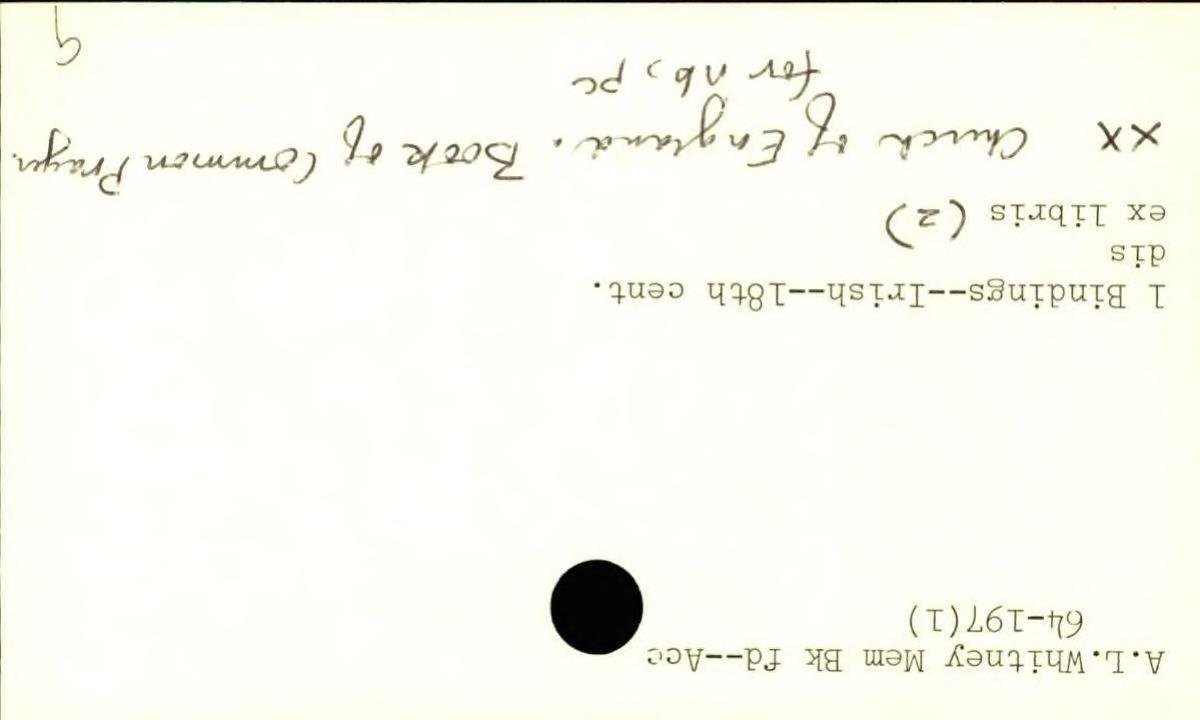 A.L.Whitney Mem Bk fd--Acc
64-197(1)
1 Bindings--Irish--18th cent.
dis
ex libris (2)
XX Church of England. Book of Common Prayer.
for nb, pc